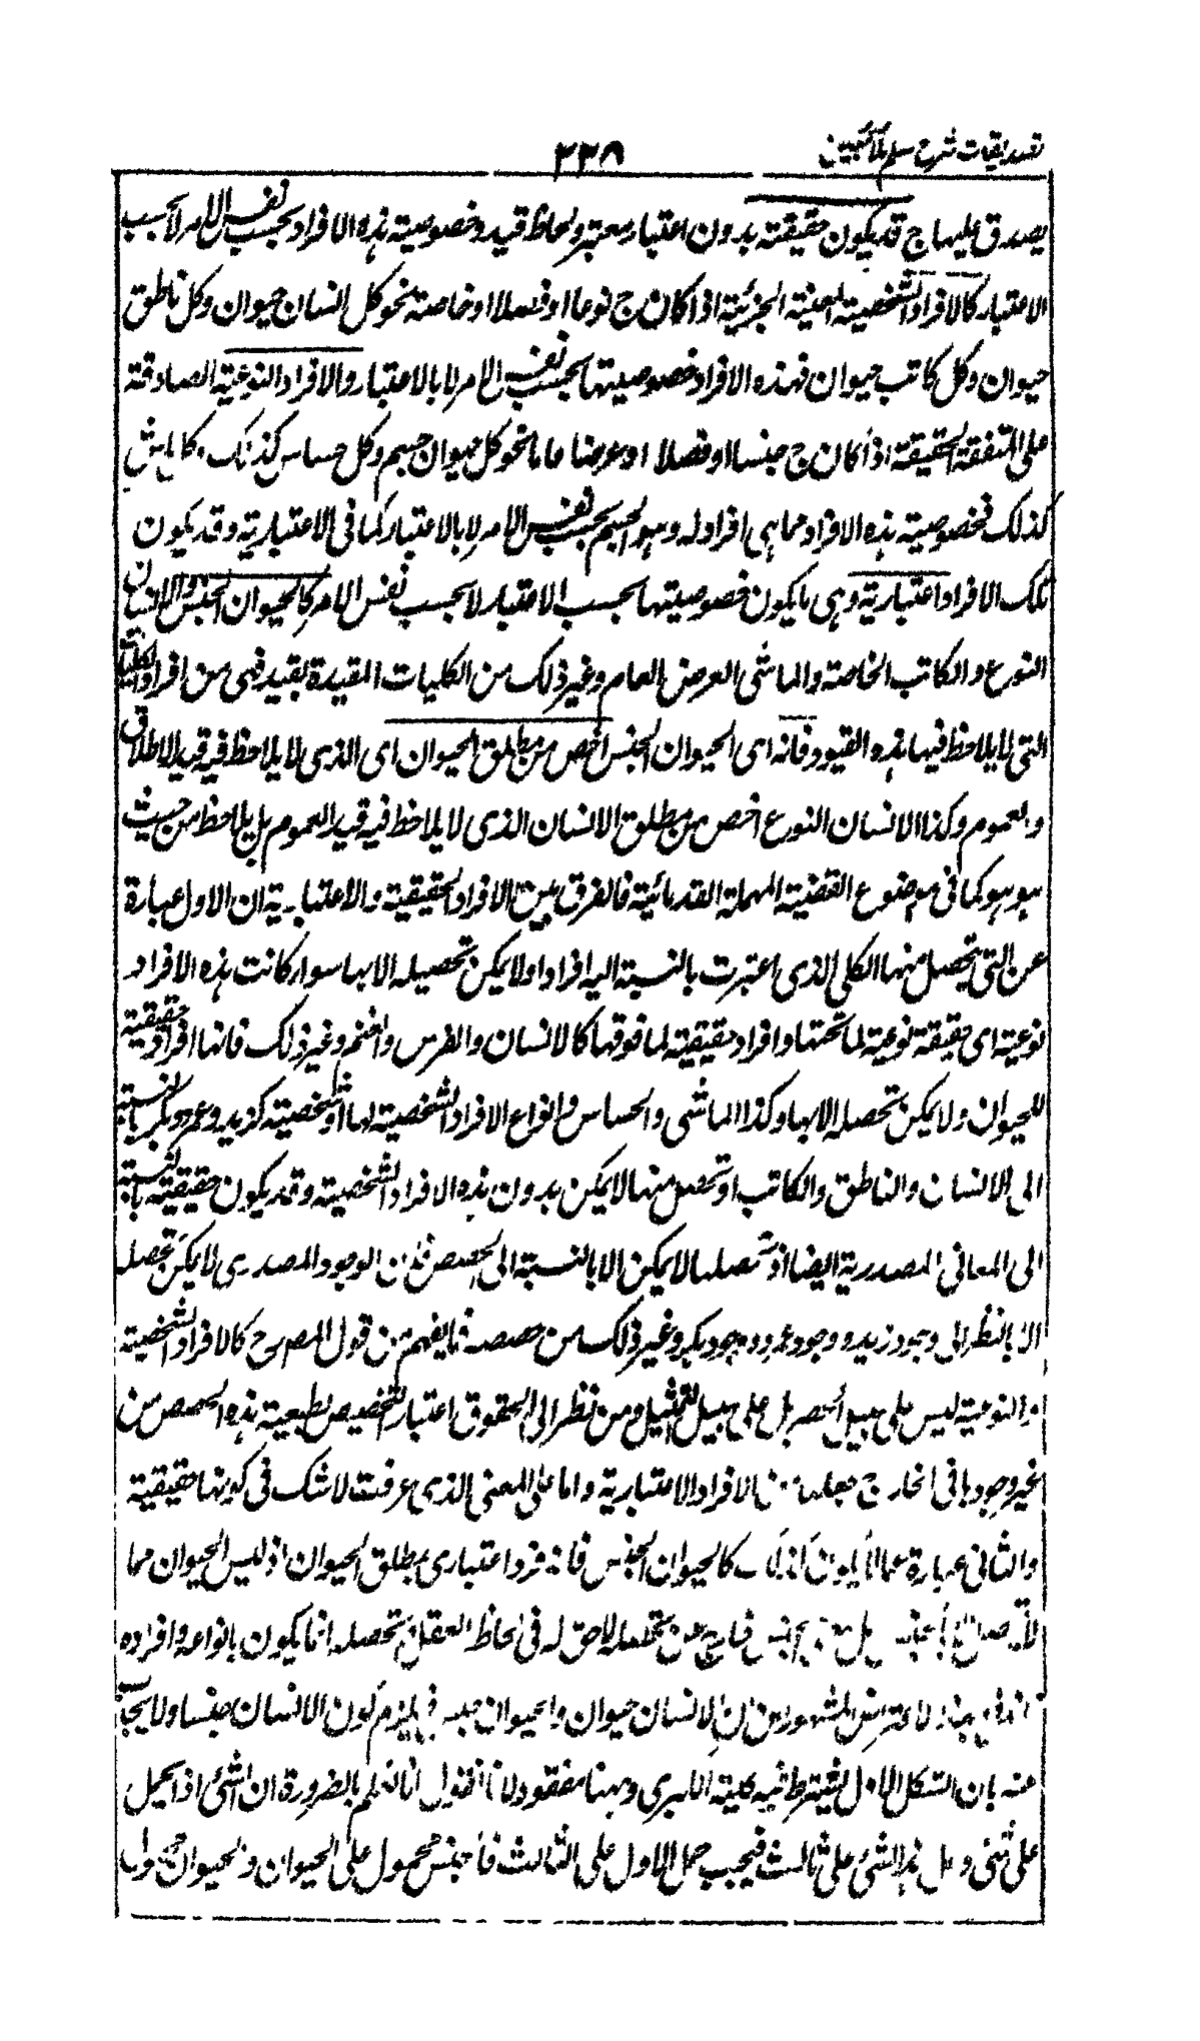 تصديقات شرح سلم ملا مبين
٢٣٨
يصدق عليها ج قد يكون حقيقية بدون اعتبار معتبر ولحاظ قيد وخصوصية هذه الافراد بحسب نفس الامر لا بحسب
الاعتبار كالافراد الشخصية المعينة الجزئية اذا كان ج نوعا او فصلا او خاصة نحو كل انسان حيوان وكل ناطق
حيوان وكل كاتب حيوان فهذه الافراد خصوصيتها بحسب نفس الامر لا بالاعتبار والافراد النوعية الصادقة
على المتفقة الحقيقة اذا كان ج جنسا او فصلا او عرضا عاما نحو كل حيوان جسم وكل حساس كذلك وكل ماش
كذلك فخصوصية هذه الافراد مما هي افراد له وهو الجسم بحسب نفس الامر لا بالاعتبار كما فى الاعتبارية وقد يكون
تلك الافراد اعتبارية وهى ما يكون خصوصيتها بحسب الاعتبار لا بحسب نفس الامر كالحيوان الجنس والانسان
النوع والكاتب الخاصة والماشى العرض العام وغير ذلك من الكليات المقيدة بقيد فهى من افراد الكليات
التى لا يلاحظ فيها هذه القيود فانه اى الحيوان الجنس اخص من مطلق الحيوان اى الذى لا يلاحظ فيه قيد الاطلاق
والعموم وكذا الانسان النوع اخص من مطلق الانسان الذى لا يلاحظ فيه قيد العموم بل يلاحظ من حيث
هو هو كما فى موضوع القضية المهملة القدمائية فالفرق بين الافراد الحقيقية والاعتبارية ان الاول عبارة
عن التى تحصل منها الكلى الذى اعتبرت بالنسبة اليه افرادا ولا يمكن تحصيله الا بها سواء كانت هذه الافراد
نوعية اى حقيقة نوعية لما تحتها وافراد حقيقية لما فوقها كالانسان والفرس والغنم وغير ذلك فانها افراد حقيقية
للحيوان ولا يمكن تحصله الا بها وكذا الماشى والحساس وانواع الافراد الشخصية لها او شخصية كزيد وعمرو وبكر بالنسبة
الى الانسان والناطق والكاتب او تحصل منها لا يمكن بدون هذه الافراد الشخصية وقد يكون حقيقية بالنسبة
الى المعانى المصدرية ايضا اذ تحصلها لا يمكن الا بالنسبة الى الحصص فان الوجود المصدرى لا يمكن تحصله
الا بالنظر الى وجود زيد ووجود عمرو ووجود بكر وغير ذلك من حصصه فما يفهم من قول المصرح كالافراد الشخصية
او النوعية ليس على سبيل الحصر بل على سبيل التمثيل ومن نظر الى لحوق اعتبار التخصيص لطبيعية هذه الحصص من
غير وجودها فى الخارج جعلها من الافراد الاعتبارية واما على المعنى الذى عرفت لا شك فى كونها حقيقية
والثانى عبارة عما لا يكون كذلك كالحيوان الجنس فانه فرد اعتبارى لمطلق الحيوان اذ ليس الحيوان مما
الجنس خارج عن تحصله لاحق له فى لحاظ العقل تحصله انما يكون بانواعه وافراده
الاعتراض المشهور من ان الانسان حيوان والحيوان جنس فيلزم كون الانسان جنسا ولا يجاب
عنه بان الشكل الاول يشترط فيه كلية الكبرى وههنا مفقود لانا نقول انا نعلم بالضرورة ان الشئ اذا حمل
على شئ وحمل هذا الشئ على ثالث فيجب حمل الاول على الثالث فالجنس محمول على الحيوان والحيوان محمول